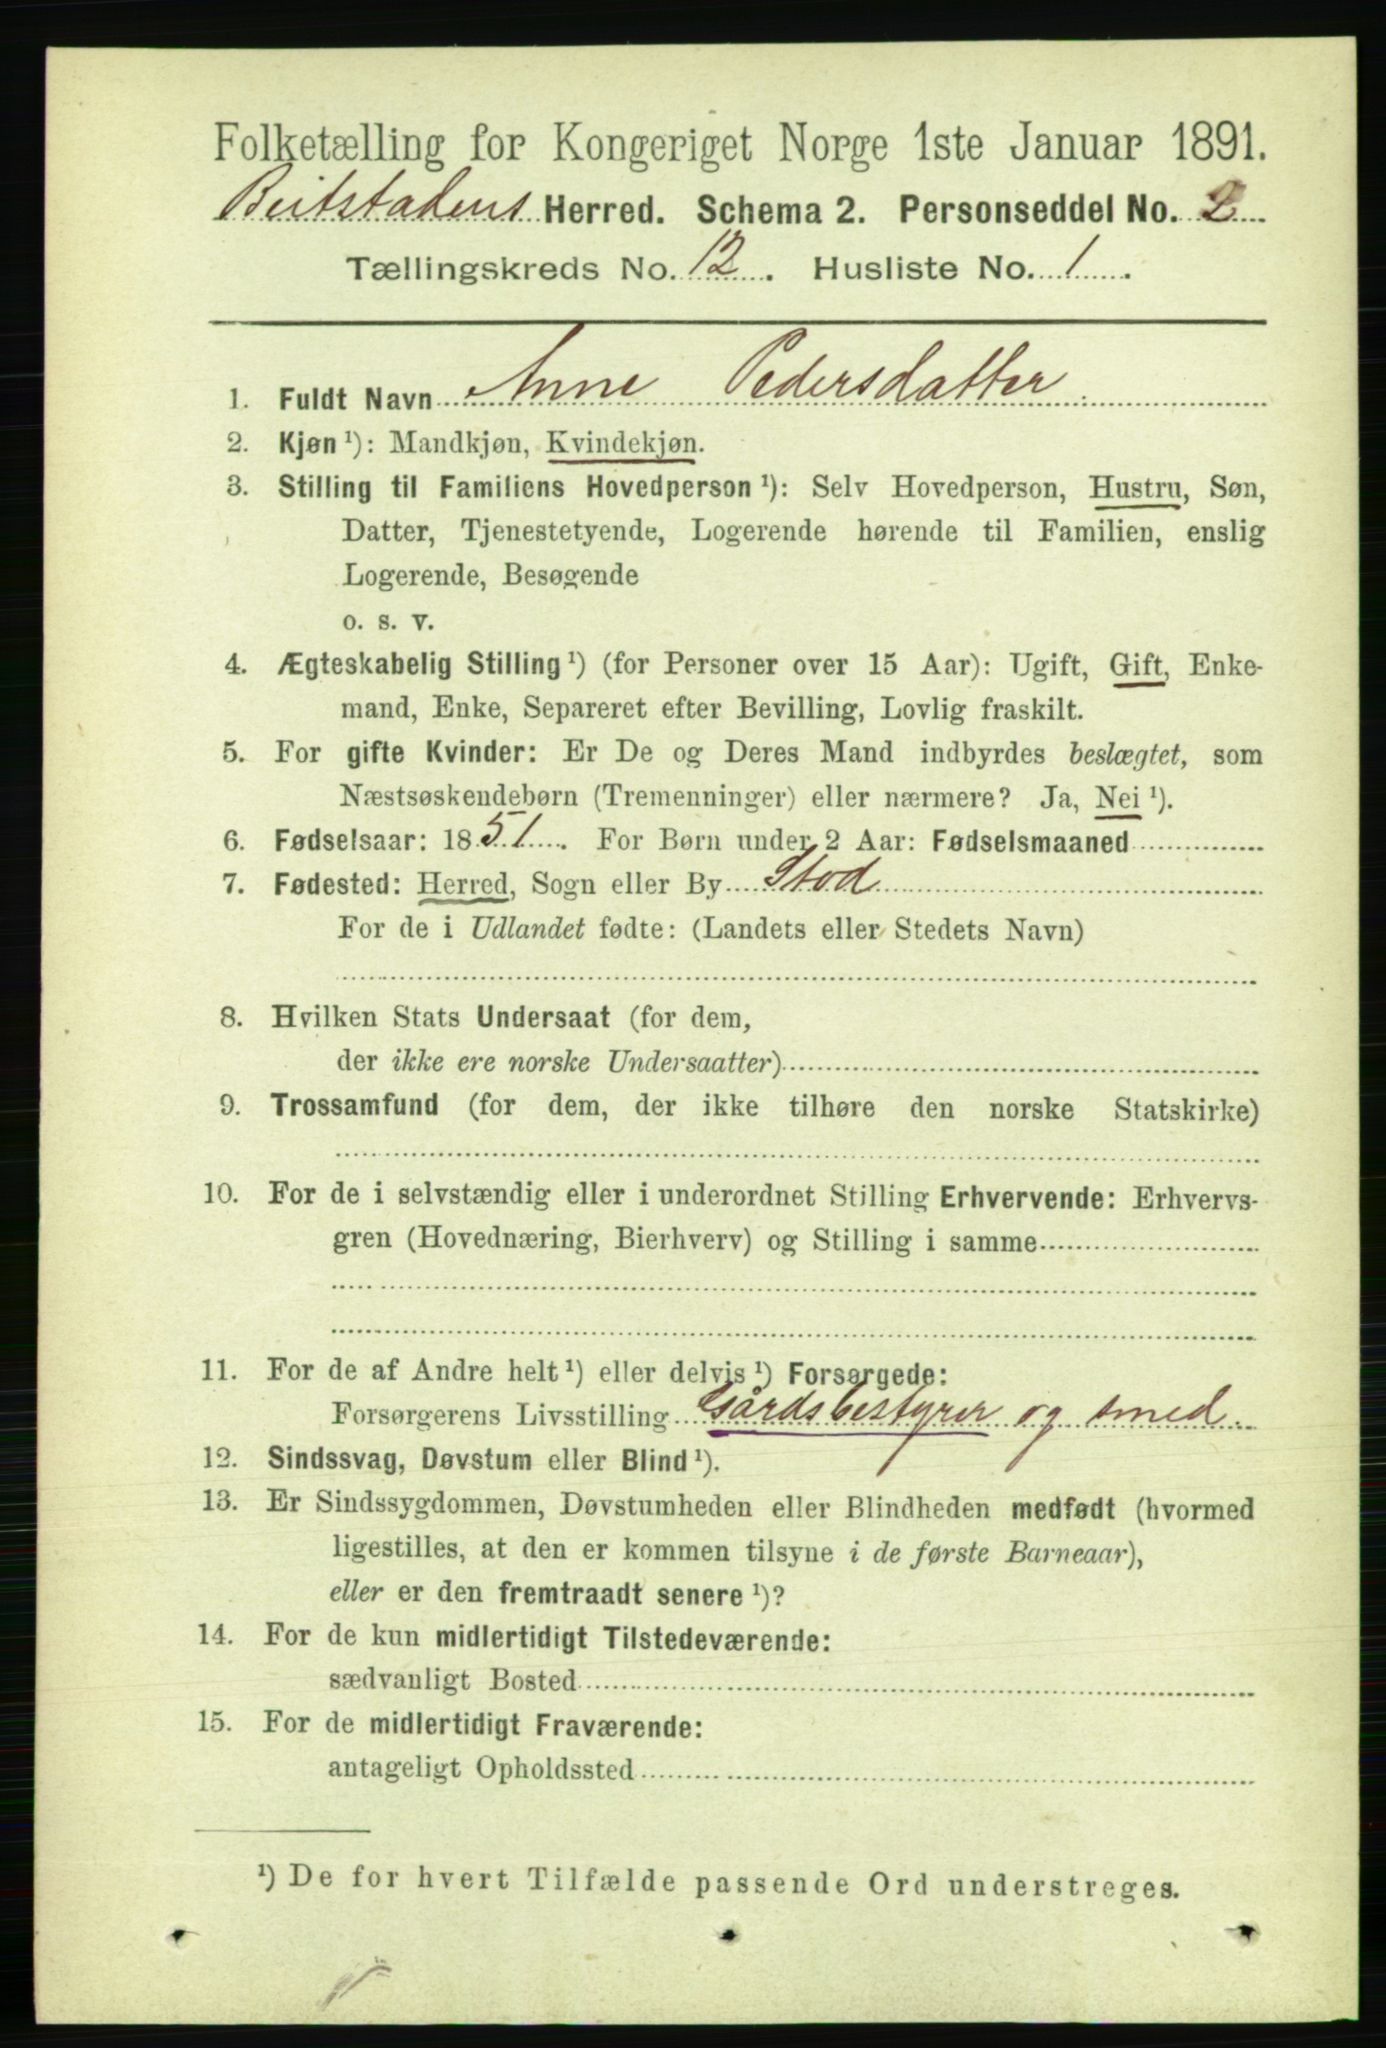 Folketælling for Kongeriget Norge 1ste Januar 1891.
Beitstadens Herred. Schema 2. Personseddel No. 2
Tællingskreds No. 12. Husliste No. 1.
1. Fuldt Navn Anne Pedersdatter
2. Kjøn ¹): Mandkjøn, Kvindekjøn.
3. Stilling til Familiens Hovedperson ¹): Selv Hovedperson, Hustru, Søn,
Datter, Tjenestetyende, Logerende hørende til Familien, enslig
Logerende, Besøgende
o. s. v.
4. Ægteskabelig Stilling ¹) (for Personer over 15 Aar): Ugift, Gift, Enke-
mand, Enke, Separeret efter Bevilling, Lovlig fraskilt.
5. For gifte Kvinder: Er De og Deres Mand indbyrdes beslægtet, som
Næstsøskendebørn (Tremenninger) eller nærmere? Ja, Nei ¹).
6. Fødselsaar: 1851. For Børn under 2 Aar: Fødselsmaaned
7. Fødested: Herred, Sogn eller By Stod
For de i Udlandet fødte: (Landets eller Stedets Navn)
8. Hvilken Stats Undersaat (for dem,
der ikke ere norske Undersaatter)
9. Trossamfund (for dem, der ikke tilhøre den norske Statskirke)
10. For de i selvstændig eller i underordnet Stilling Erhvervende: Erhvervs-
gren (Hovednæring, Bierhverv) og Stilling i samme
11. For de af Andre helt ¹) eller delvis ¹) Forsørgede:
Forsørgerens Livsstilling Gårdsbestyrer og smed.
12. Sindssvag, Døvstum eller Blind ¹).
13. Er Sindssygdommen, Døvstumheden eller Blindheden medfødt (hvormed
ligestilles, at den er kommen tilsyne i de første Barneaar),
eller er den fremtraadt senere ¹)?
14. For de kun midlertidigt Tilstedeværende:
sædvanligt Bosted
15. For de midlertidigt Fraværende:
antageligt Opholdssted
¹) De for hvert Tilfælde passende Ord understreges.